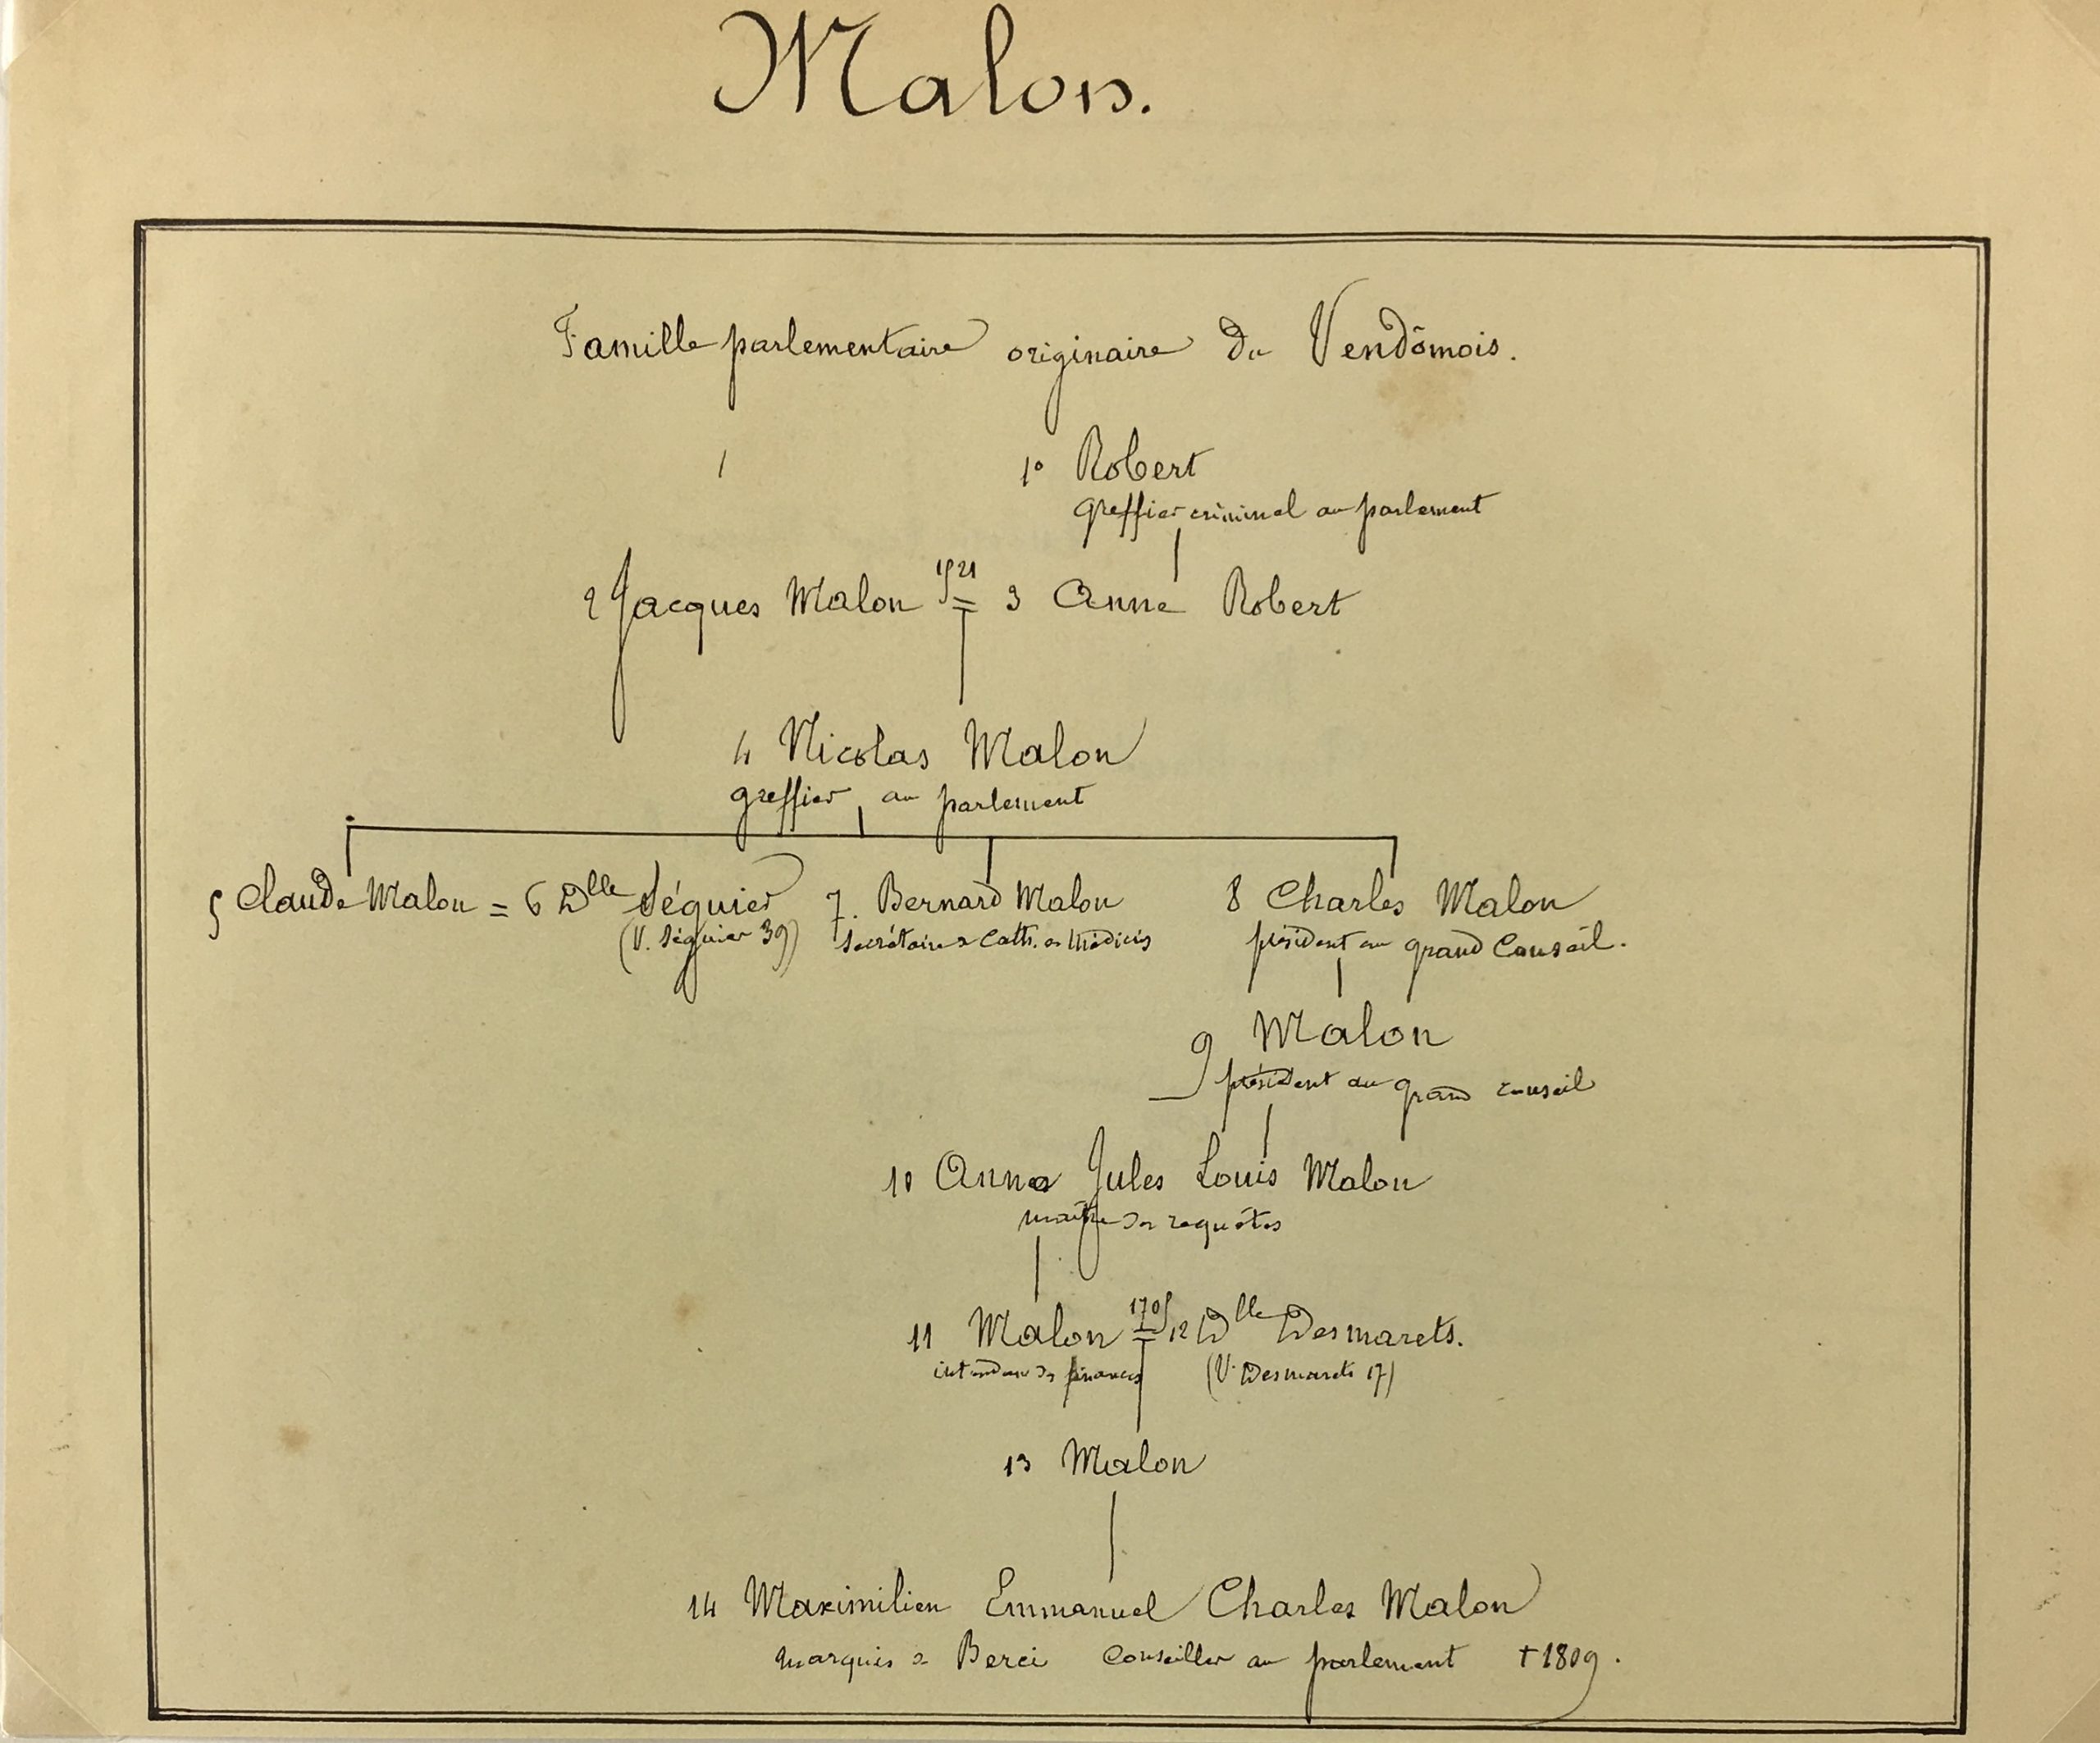 Malon.
Famille parlementaire originaire du Vendômois.
1 1° Robert
greffier criminel au parlement
1521
2 Jacques Malon = 3 Anne Robert
4 Nicolas Malon
greffier au parlement
5 Claude Malon = 6 Dlle Séguier 7. Bernard Malon 8 Charles Malon
(V. Séguier 39) secrétaire de Cath. de Médicis président au grand Conseil.
9 Malon
président au grand conseil
10 Anne Jules Louis Malon
maître des requêtes
1705
11 Malon = 12 Dlle Desmarets.
intendant des finances (V. Desmarets 17)
13 Malon
14 Maximilien Emmanuel Charles Malon
marquis de Berci Conseiller au parlement † 1809.